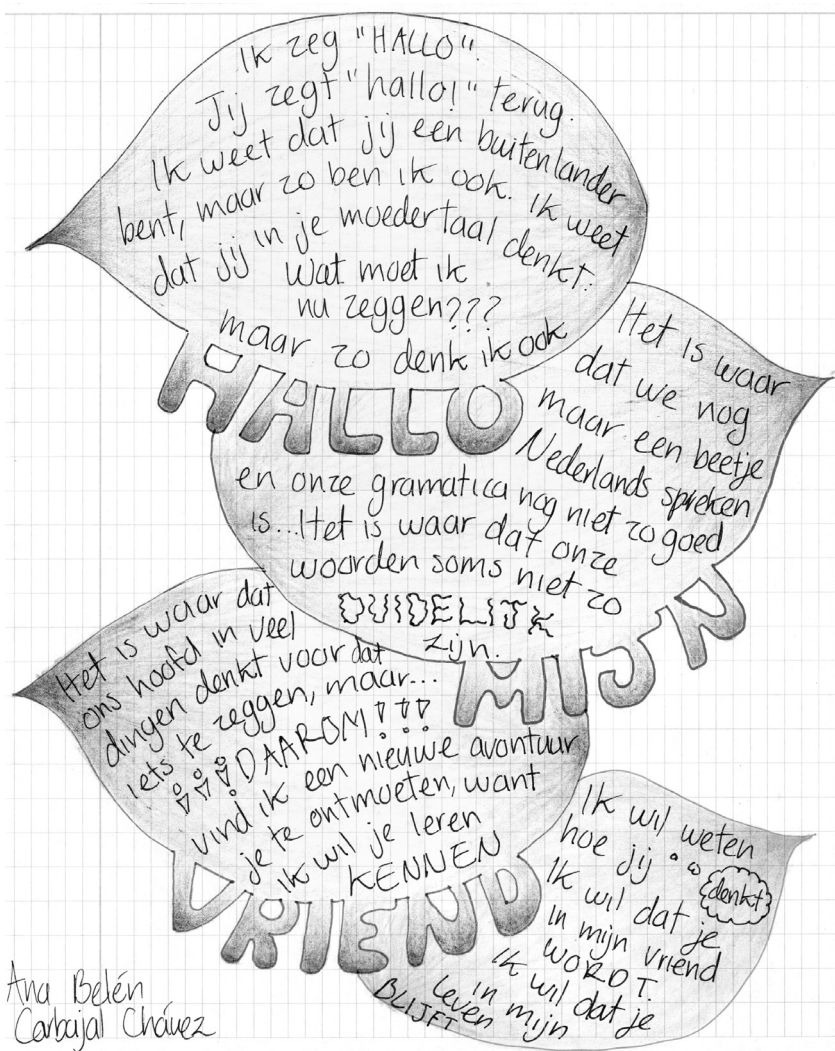 Ik zeg "HALLO".
Jij zegt "hallo!" terug.
Ik weet dat jij een buitenlander
bent, maar zo ben ik ook. Ik weet
dat jij in je moedertaal denkt:
Wat moet ik
nu zeggen???
maar zo denk ik ook
HALLO
Het is waar
dat we nog
maar een beetje
Nederlands spreken
en onze gramatica nog niet zo goed
is...Het is waar dat onze
woorden soms niet zo
DUIDELIJK
zijn.
MIJN
Het is waar dat
ons hoofd in veel
dingen denkt voor dat
iets te zeggen, maar...
¡¡¡DAAROM!!!
vind ik een nieuwe avontuur
je te ontmoeten, want
ik wil je leren
KENNEN
VRIEND
Ik wil weten
hoe jij
denkt
Ik wil dat je
in mijn vriend
WORDT.
Ik wil dat je
in mijn
leven
BLIJFT
Ana Belén
Carbajal Chávez